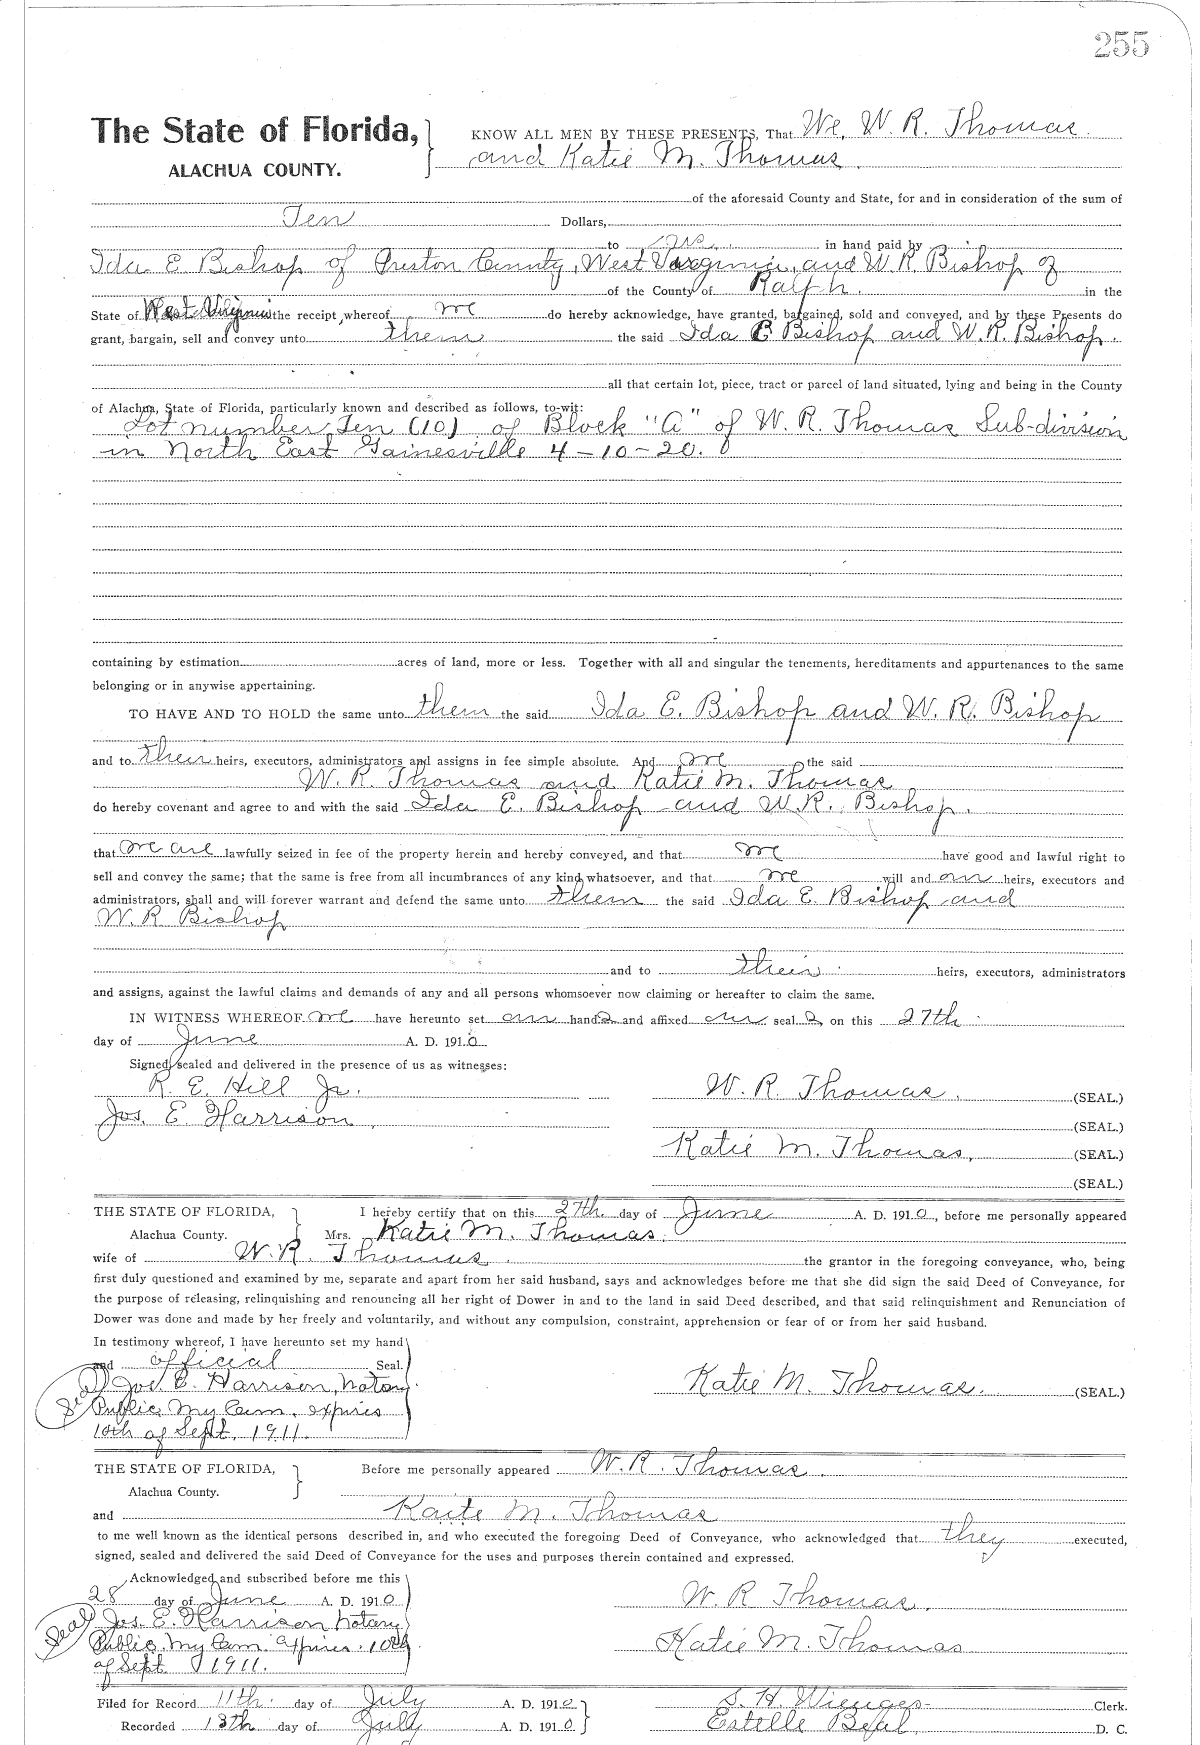 255
The State of Florida, KNOW ALL MEN BY THESE PRESENTS, That We, W. R. Thomas
ALACHUA COUNTY. and Katie M. Thomas
of the aforesaid County and State, for and in consideration of the sum of
Ten Dollars,
to us in hand paid by
Ida E Bishop of Preston County, West Virginia, and W. R. Bishop of
of the County of Ralph. in the
State of West Virginia the receipt whereof we do hereby acknowledge, have granted, bargained, sold and conveyed, and by these Presents do
grant, bargain, sell and convey unto them the said Ida E Bishop and W. R. Bishop.
all that certain lot, piece, tract or parcel of land situated, lying and being in the County
of Alachua, State of Florida, particularly known and described as follows, to-wit:
Lot number Ten (10) of Block "A" of W. R. Thomas Sub-division
in North East Gainesville 4-10-20.
containing by estimation acres of land, more or less. Together with all and singular the tenements, hereditaments and appurtenances to the same
belonging or in anywise appertaining.
TO HAVE AND TO HOLD the same unto them the said Ida E. Bishop and W. R. Bishop
and to their heirs, executors, administrators and assigns in fee simple absolute. And we the said
W. R. Thomas and Katie M. Thomas
do hereby covenant and agree to and with the said Ida E. Bishop and W. R. Bishop.
that we are lawfully seized in fee of the property herein and hereby conveyed, and that we have good and lawful right to
sell and convey the same; that the same is free from all incumbrances of any kind whatsoever, and that we will and our heirs, executors and
administrators, shall and will forever warrant and defend the same unto them the said Ida E. Bishop and
W. R. Bishop
and to their heirs, executors, administrators
and assigns, against the lawful claims and demands of any and all persons whomsoever now claiming or hereafter to claim the same.
IN WITNESS WHEREOF we have hereunto set our hands and affixed our seals on this 27th
day of June A. D. 1910
Signed, sealed and delivered in the presence of us as witnesses:
R. E. Hill Jr. W. R. Thomas. (SEAL.)
Jos. E. Harrison. (SEAL.)
Katie M. Thomas, (SEAL.)
(SEAL.)
THE STATE OF FLORIDA, I hereby certify that on this 27th. day of June A. D. 1910, before me personally appeared
Alachua County. Mrs. Katie M. Thomas.
wife of W. R. Thomas. the grantor in the foregoing conveyance, who, being
first duly questioned and examined by me, separate and apart from her said husband, says and acknowledges before me that she did sign the said Deed of Conveyance, for
the purpose of releasing, relinquishing and renouncing all her right of Dower in and to the land in said Deed described, and that said relinquishment and Renunciation of
Dower was done and made by her freely and voluntarily, and without any compulsion, constraint, apprehension or fear of or from her said husband.
In testimony whereof, I have hereunto set my hand
and official Seal.
Seal Jos. E. Harrison, Notary Katie M. Thomas. (SEAL.)
Public, My Com. expires
10th of Sept. 1911.
THE STATE OF FLORIDA, Before me personally appeared W. R. Thomas.
Alachua County.
and Kaite M. Thomas
to me well known as the identical persons described in, and who executed the foregoing Deed of Conveyance, who acknowledged that they executed,
signed, sealed and delivered the said Deed of Conveyance for the uses and purposes therein contained and expressed.
Acknowledged and subscribed before me this
28 day of June A. D. 1910 W. R Thomas.
Seal Jos. E. Harrison Notary
Public. My Com. expires. 10th Katie M. Thomas
of Sept 1911.
Filed for Record 11th. day of July A. D. 1910 S. H. Wienges Clerk.
Recorded 13th day of July A. D. 1910 Estelle Beal. D. C.